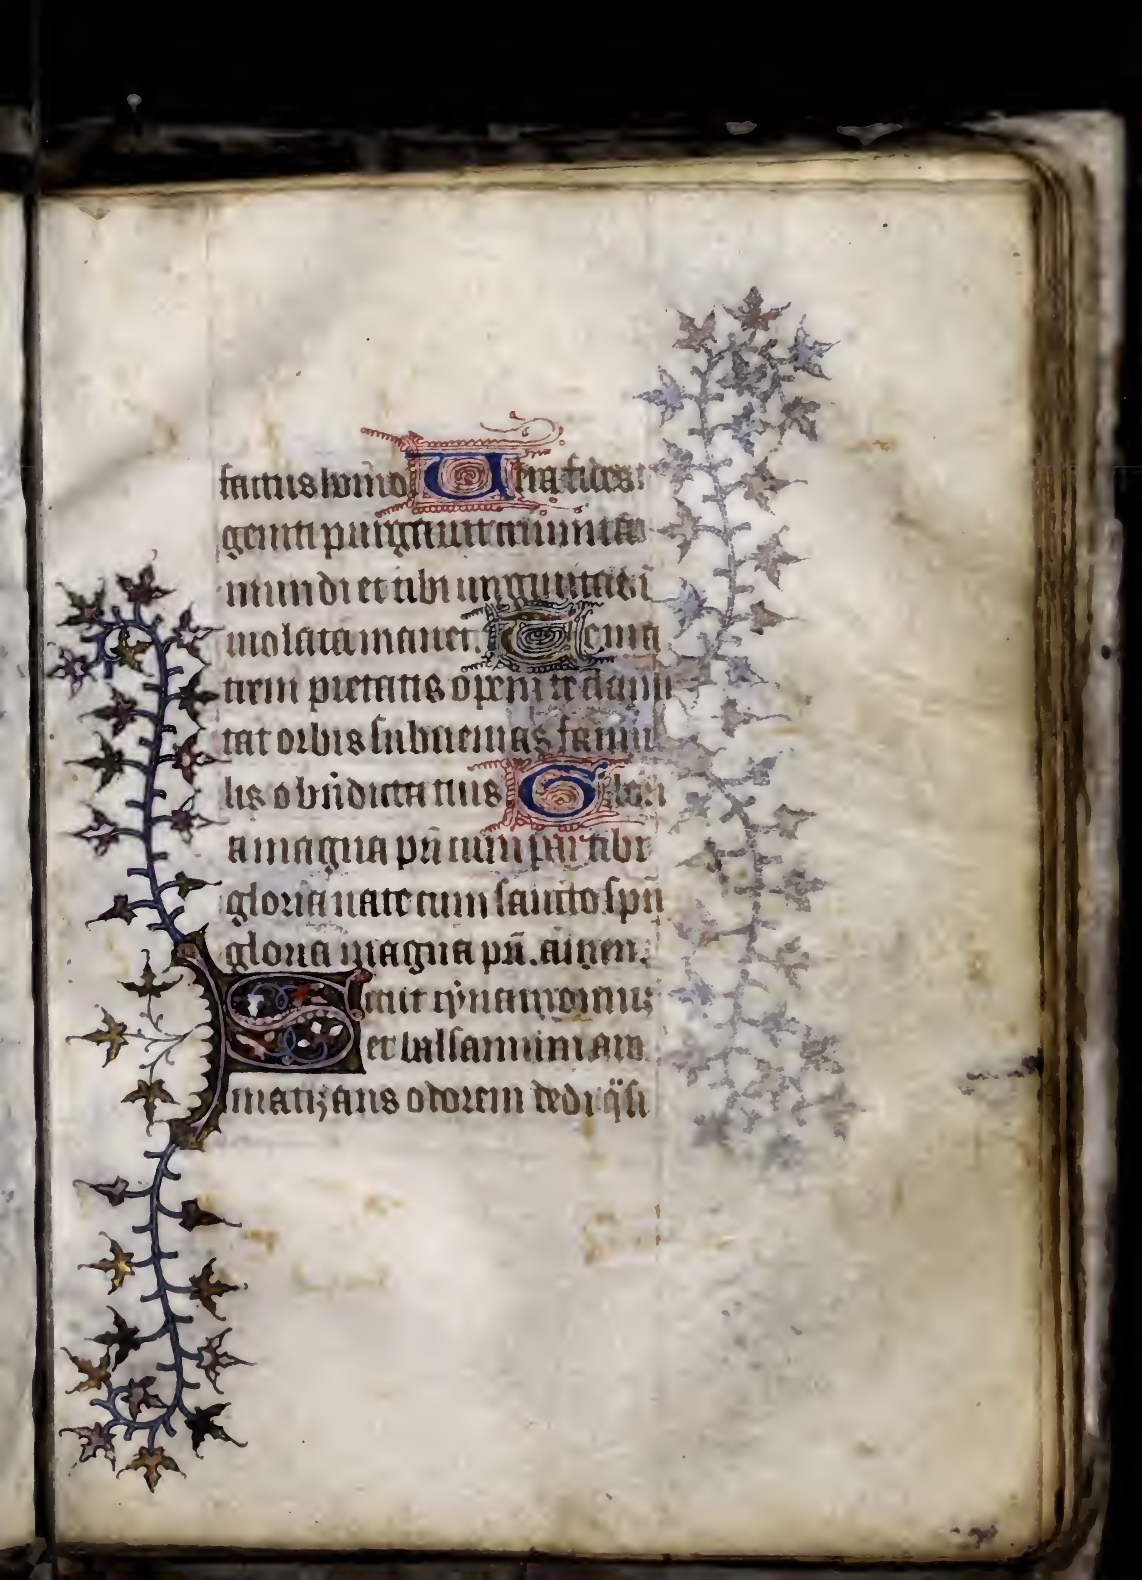 factus homo Uera fides i
geniti purgauit crimina
mundi et tibi uirginitas ī
uiolata manet. Te ma
trem pietatis opem te clami
tat orbis subuenias famu
lis o bn̄dicta tuis Glori
a magna pr̄i cum par tibi
gloria nate cum sancto spū
gloria magna pr̄i. amen.
Sicut cynamomuz
et balsamum aro
matizans odorem dedi q̄si